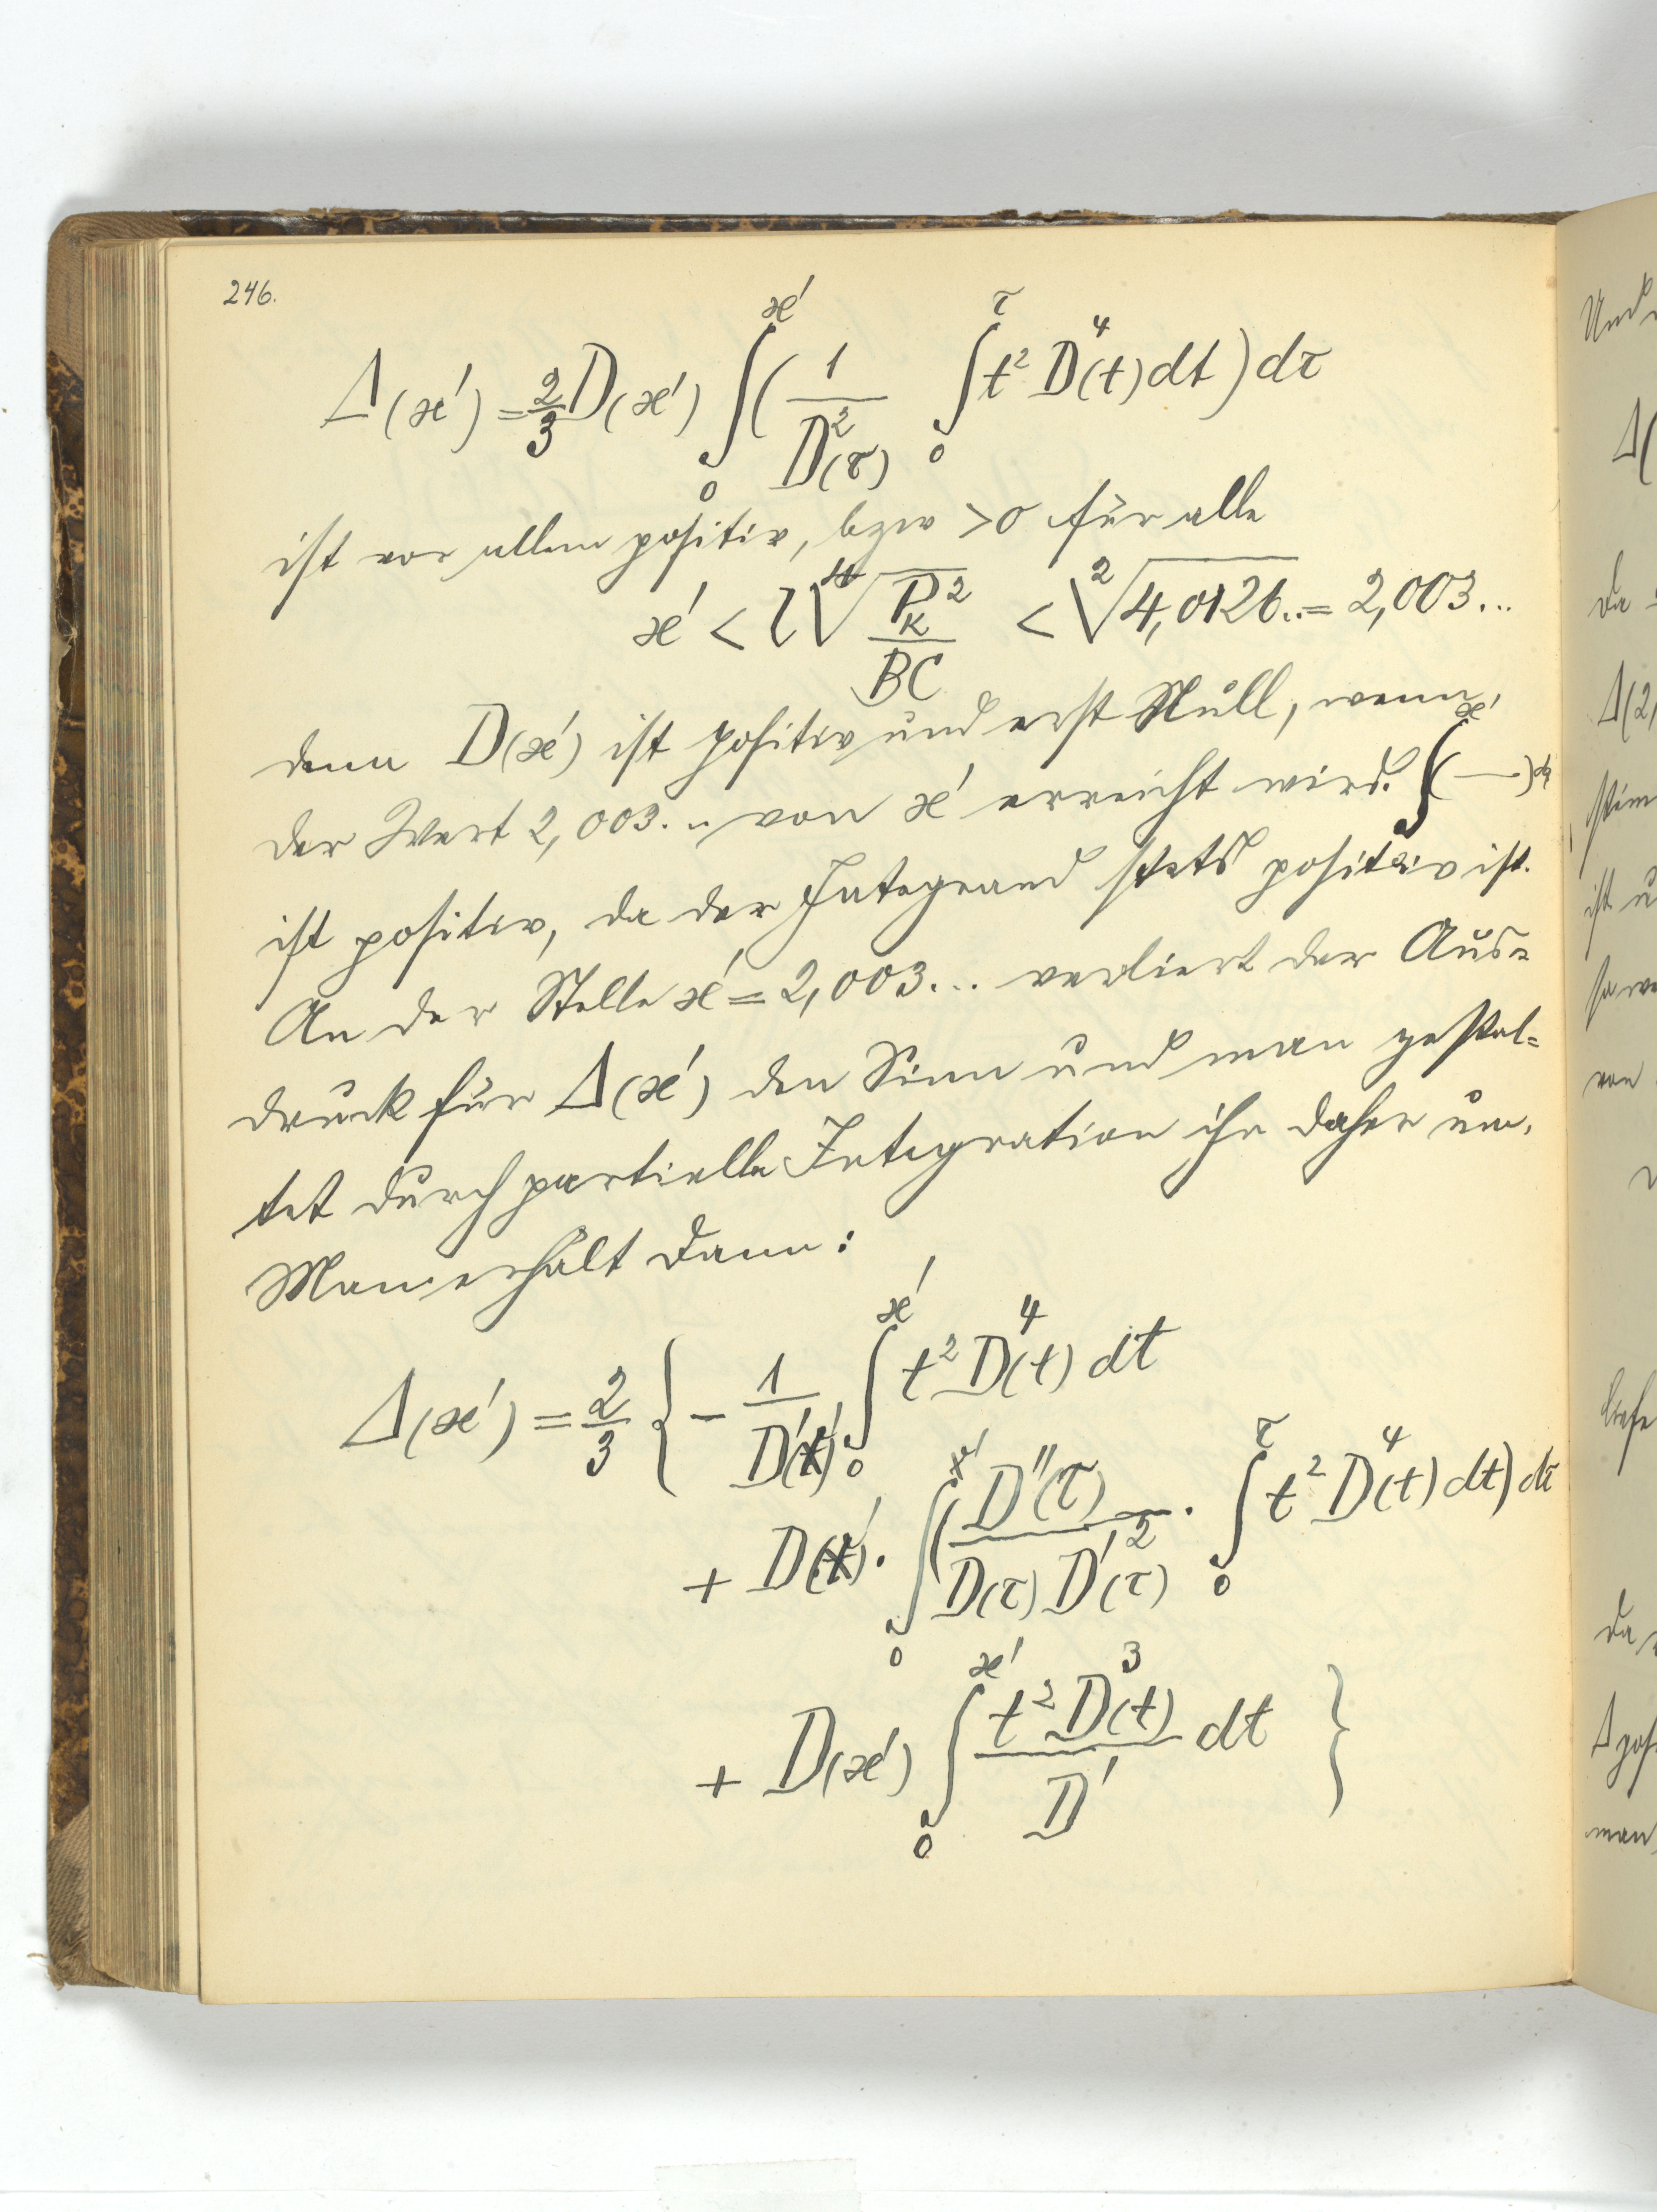 246.
Δ(ϰ') = 2/3 D(ϰ') ∫₀^ϰ' ( 1/D²(τ) ∫₀^τ t² D⁴(t) dt ) dτ
ist vor allem positiv, bzw > 0 für alle
ϰ' < l ∜(P_K²/BC) < ²√4,0126.. = 2,003...
denn D(ϰ') ist positiv und erst Null, wenn
der Wert 2,003... von ϰ' erreicht wird. ∫₀^ϰ' ( — ) dτ
ist positiv, da der Integrand stets positiv ist.
An der Stelle ϰ' = 2,003... verliert der Aus=
druck für Δ(ϰ') den Sinn und man gestal=
tet durch partielle Integration ihn daher um.
Man erhält dann:
Δ(ϰ') = 2/3 { - 1/D'(ϰ') ∫₀^ϰ' t² D⁴(t) dt
+ D(ϰ') · ∫₀^ϰ' ( D''(τ) / D(τ) D'²(τ) · ∫₀^τ t² D⁴(t) dt ) dτ
+ D(ϰ') ∫₀^ϰ' t² D³(t) / D' dt }